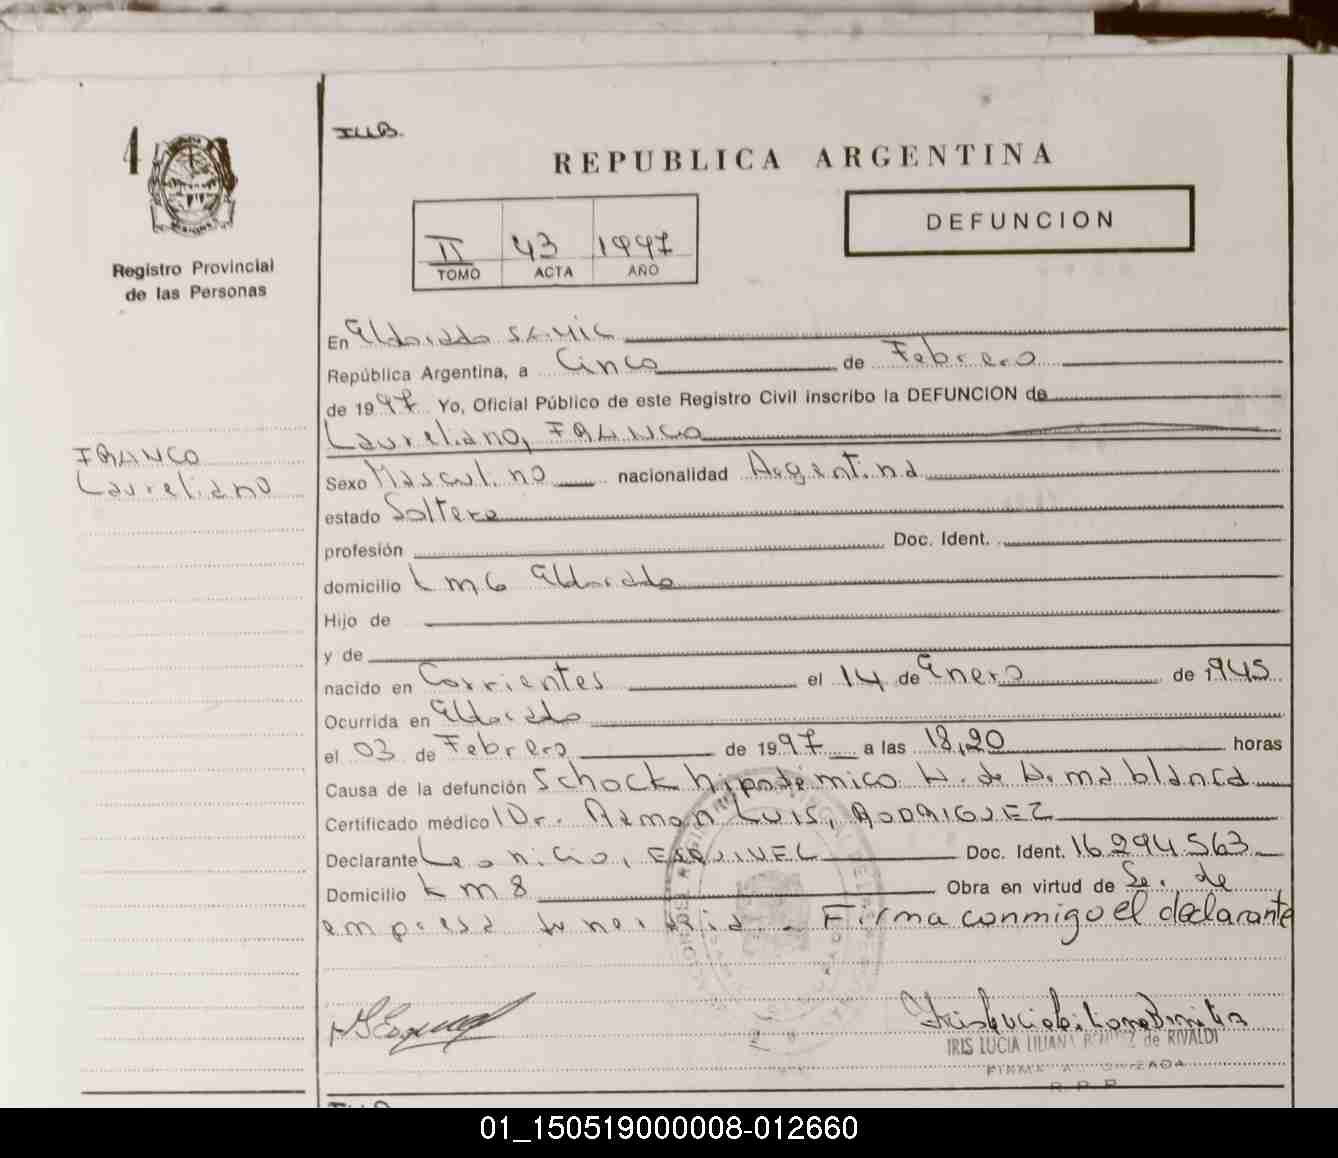 4
I.LL.B.
REPUBLICA ARGENTINA
DEFUNCION
II 43 1997
TOMO ACTA AÑO
Registro Provincial
de las Personas
FRANCO
Laureliano
En Eldorado SAMIC
República Argentina, a Cinco de Febrero
de 1997 Yo, Oficial Público de este Registro Civil inscribo la DEFUNCION de
Laureliano, FRANCO
Sexo Masculino nacionalidad Argentina
estado Soltero
profesión Doc. Ident.
domicilio Km 6 Eldorado
Hijo de
y de
nacido en Corrientes el 14 de Enero de 1945
Ocurrida en Eldorado
el 03 de Febrero de 1997 a las 18,20 horas
Causa de la defunción Schock hipodémico H. de H. ma blanca
Certificado médico Dr. Ramon Luis, RODRIGUEZ
Declarante Leonicio, ESQUIVEL Doc. Ident. 16294563
Domicilio Km 8 Obra en virtud de Se. de
empresa funeraria. Firma conmigo el declarante
IRIS LUCIA LILIANA de RIVALDI
R.P.P.
01_150519000008-012660